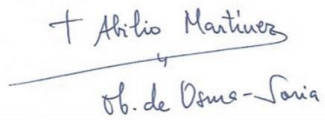 † Abilio Martínez
Ob. de Osma-Soria